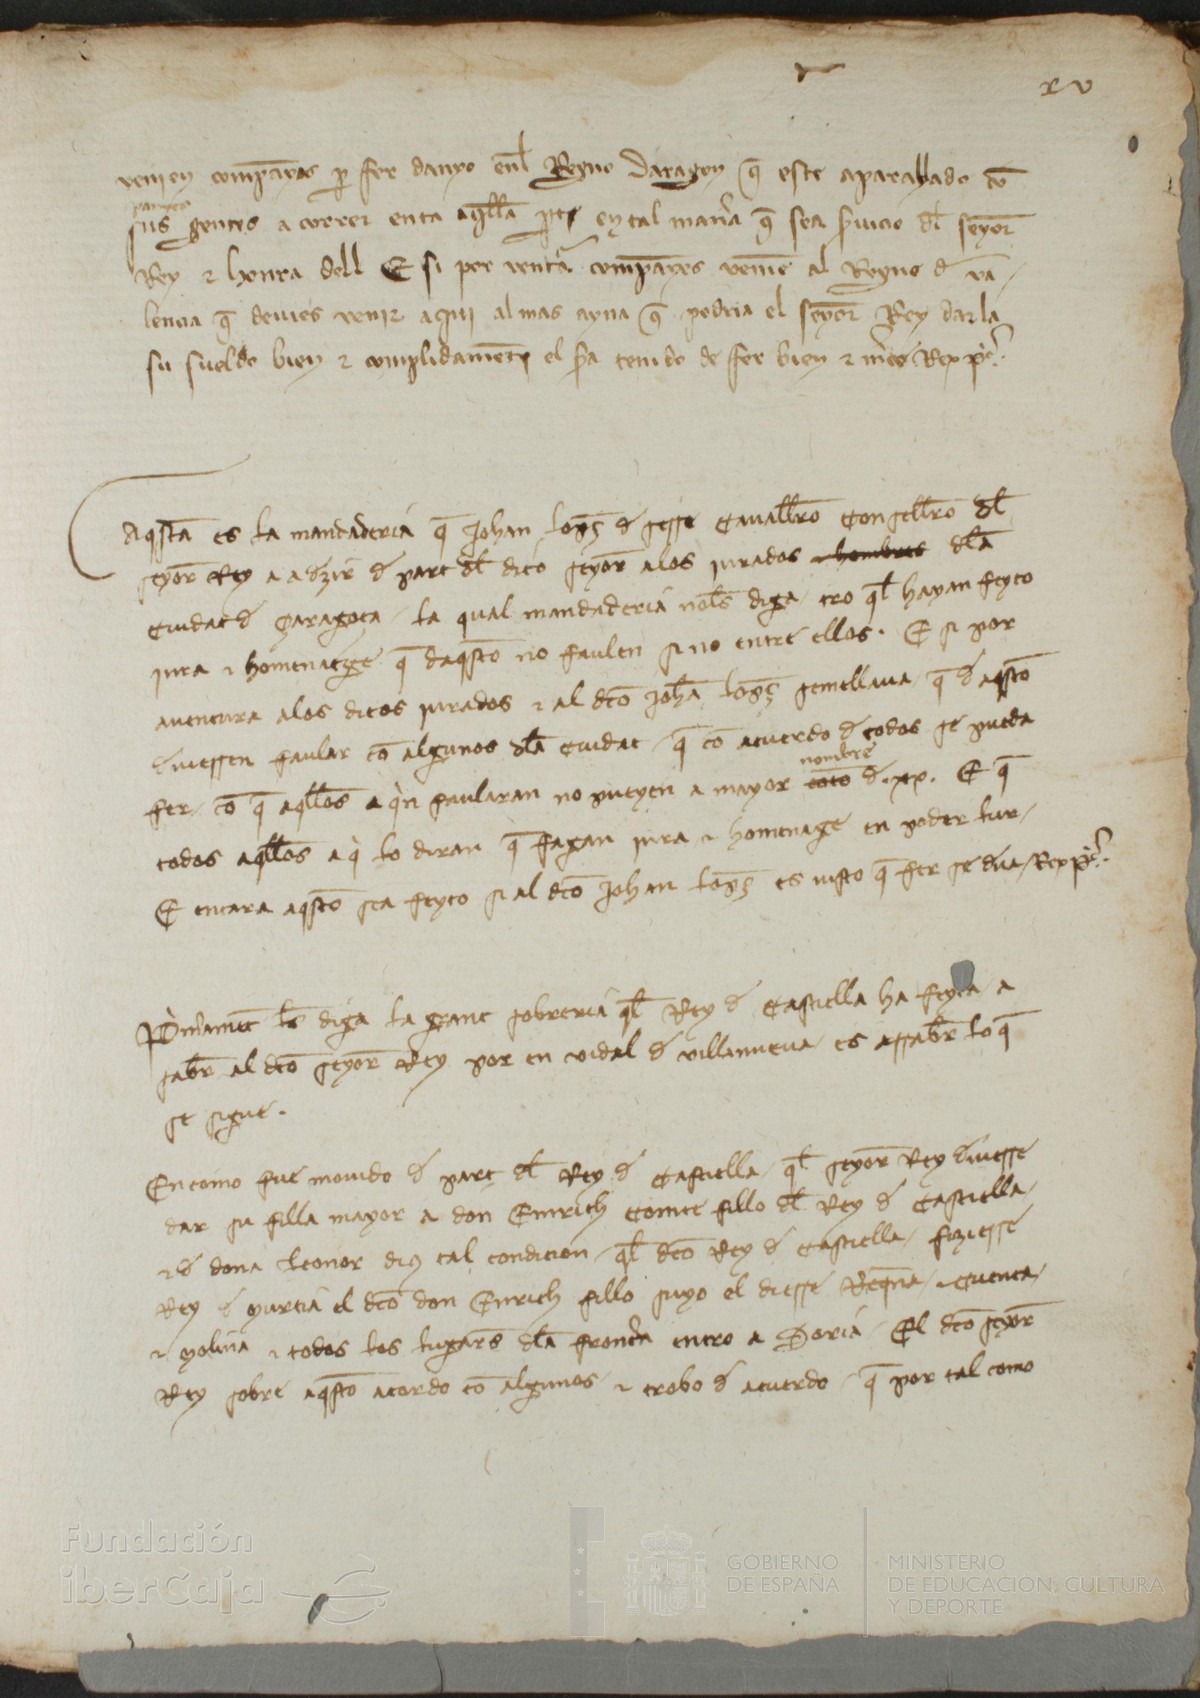 xv
venien companyas per fer danyo enl Regno Daragon que este aparayado con
parientes
sus gentes a correr enta aquella part en tal manera que sea servicio del senyor
Rey & honra dell E si por ventura companyas venien al Regno de Va
lencia que devies venir aqui al mas ayna que podria el senyor Rey dar la
su sueldo bien & complidament el sera tenido de fer bien & merce Rex Petrus
Aquesta es la mandaderia que Johan Lopez de Sesse Cavallero Consellero del
senyor Rey a a dezir de part del dito senyor a los jurados & hombres dela
Ciudat de Çaragoça / la qual mandaderia nols diga / tro quel hayan feyto
jura & homenatge que daquesto no faulen si no entre ellos. E si por
aventura a los ditos jurados & al dito Johan Lopez semellava / que de aquesto
deviessen faular con algunos dela Ciudat / que con acuerdo de todos se pueda
nombre
fer / con que aquellos a quien faularan no pueyen a mayor coto de .xx. E que
todos aquellos a qui lo diran que fagan jura & homenage en poder lur /
E encara aquesto sea feyto si al dito Johan Lopez es visto que fer se deva / Rex Petrus
Primerament les diga la grant sobreria quel Rey de Castiella ha feyta / a
saber al dito senyor Rey por en Vidal de Villanueva es assaber lo que
se sigue.
En como fue movido de part del Rey de Castiella / quel senyor Rey deviesse
dar su filla mayor a don Enrich Comte fillo del Rey de Castiella /
& de dona Leonor dius tal condicion / quel dito Rey de Castiella / fiziesse
Rey de Murcia el dito don Enrich fillo suyo el diesse Requena / & Cuenca /
& Molina & todos los lugares dela frontera entro a Soria / El dito senyor
Rey sobre aquesto acordo con algunos / & trobo de acuerdo / que por tal como
Fundación
iberCaja
GOBIERNO
DE ESPAÑA
MINISTERIO
DE EDUCACIÓN, CULTURA
Y DEPORTE